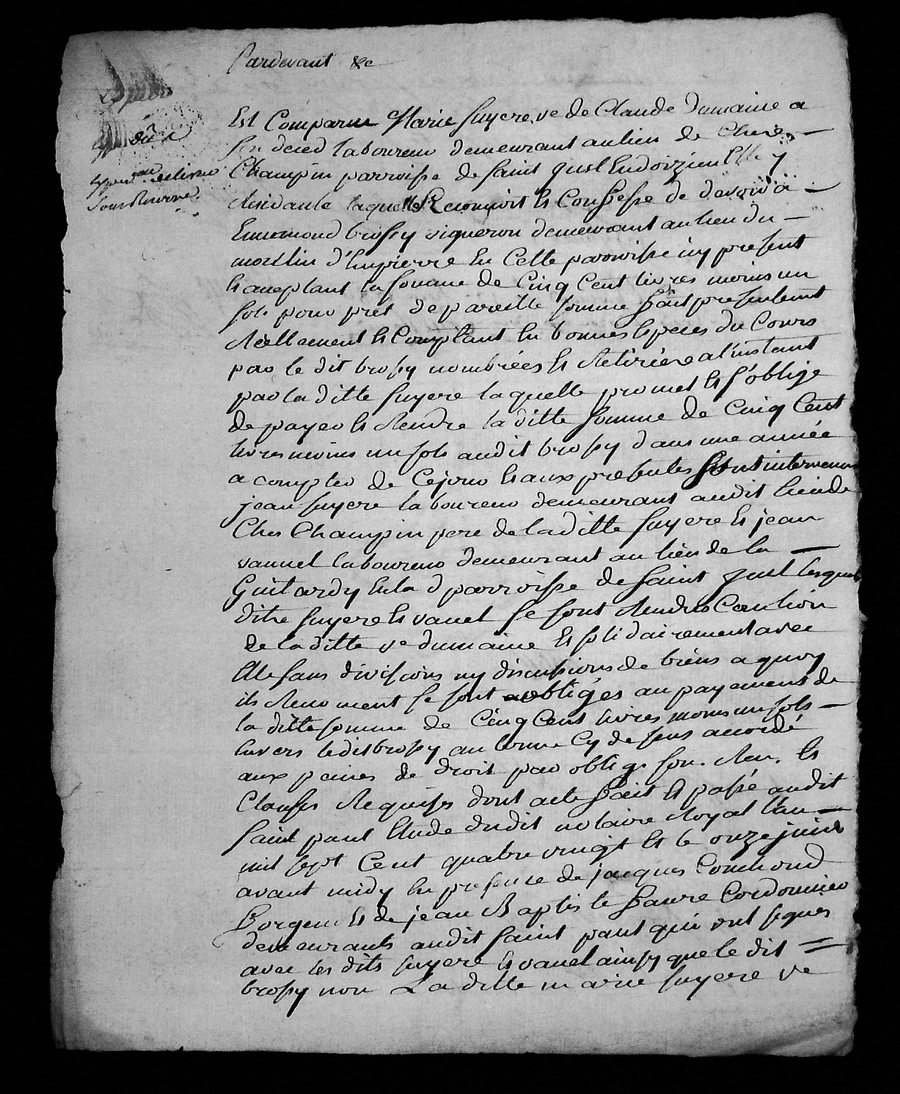 Pardevant &c
Est Comparue Marie Suyere ve de Claude dumaine a
son deced laboureur demeurant au lieu de Chez
Champin parroisse de Saint
Residante laquelle Reconnoit et Confesse de devoir a
Ennemond brossy vigneron demeurant au lieu du
moulin d'hupierre en Cette parroisse icy present
et aceptant la somme de Cinq Cent livres moins un
sols pour pret de pareille somme fait presentement
Reellement et Comptant en bonnes Especes du Cours
par le dit brossy nombrées et Retirées a l'instant
par la ditte Suyere laquelle promet et s'oblige
de payer et Rendre la ditte somme de Cinq Cent
livres moins un sols audit brossy dans une année
a compter de Cejour et aux presentes sont intervenus
jean Suyere laboureur demeurant audit lieu de
Ches Champin pere de la ditte Suyere et jean
vanel laboureur demeurant au lieu de la
Guitardy en la d parroisse de Saint lesquels
dits Suyere et vanel se sont Rendus Caution
de la ditte ve dumaine et solidairement avec
Elle sans divisions ny discussions de biens a quoy
ils Renoncent se sont obligés au payement de
la ditte somme de Cinq Cent livres moins un sols
Envers le dit brossy au terme Cy dessus accordé
aux peines de droit par oblig. son. Ren. et
Clauses Requises dont acte fait et passé audit
Saint paul Etude dudit notaire Royal l'an
mil sept Cent quatre vingt et le onze juin
avant midy En presence de jacques
et de jean Baptiste faure Cordonnier
demeurants audit Saint paul qui ont signés
avec les dits Suyere et vanel ainsy que le dit
brossy non La ditte marie Suyere ve